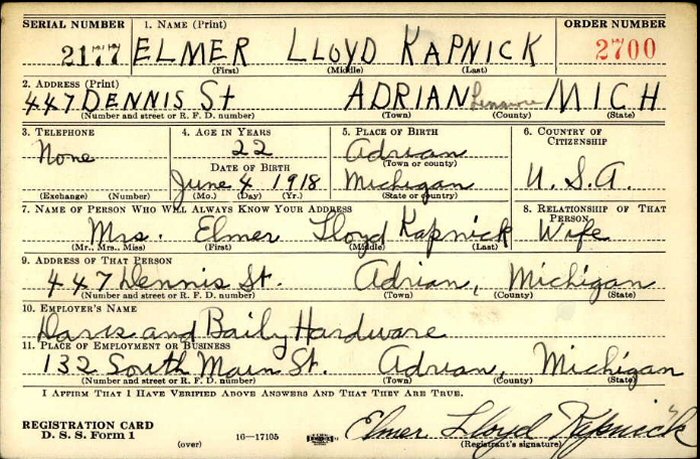 SERIAL NUMBER 1. NAME (Print) ORDER NUMBER
2177 ELMER LLOYD KAPNICK 2700
(First) (Middle) (Last)
2. ADDRESS (Print)
447 DENNIS St ADRIAN Lenawee MICH
(Number and street or R. F. D. number) (Town) (County) (State)
3. TELEPHONE 4. AGE IN YEARS 5. PLACE OF BIRTH 6. COUNTRY OF CITIZENSHIP
None 22 Adrian
(Town or county)
DATE OF BIRTH
June 4 1918 Michigan U.S.A.
(Exchange) (Number) (Mo.) (Day) (Yr.) (State or country)
7. NAME OF PERSON WHO WILL ALWAYS KNOW YOUR ADDRESS 8. RELATIONSHIP OF THAT PERSON
Mrs. Elmer Lloyd Kapnick Wife
(Mr., Mrs., Miss) (First) (Middle) (Last)
9. ADDRESS OF THAT PERSON
447 Dennis St. Adrian, Michigan
(Number and street or R. F. D. number) (Town) (County) (State)
10. EMPLOYER'S NAME
and Baily Hardware
11. PLACE OF EMPLOYMENT OR BUSINESS
132 South Main St. Adrian, Michigan
(Number and street or R. F. D. number) (Town) (County) (State)
I AFFIRM THAT I HAVE VERIFIED ABOVE ANSWERS AND THAT THEY ARE TRUE.
REGISTRATION CARD
D. S. S. Form 1 Elmer Lloyd Kapnick
(over) 16—17105 (Registrant's signature)